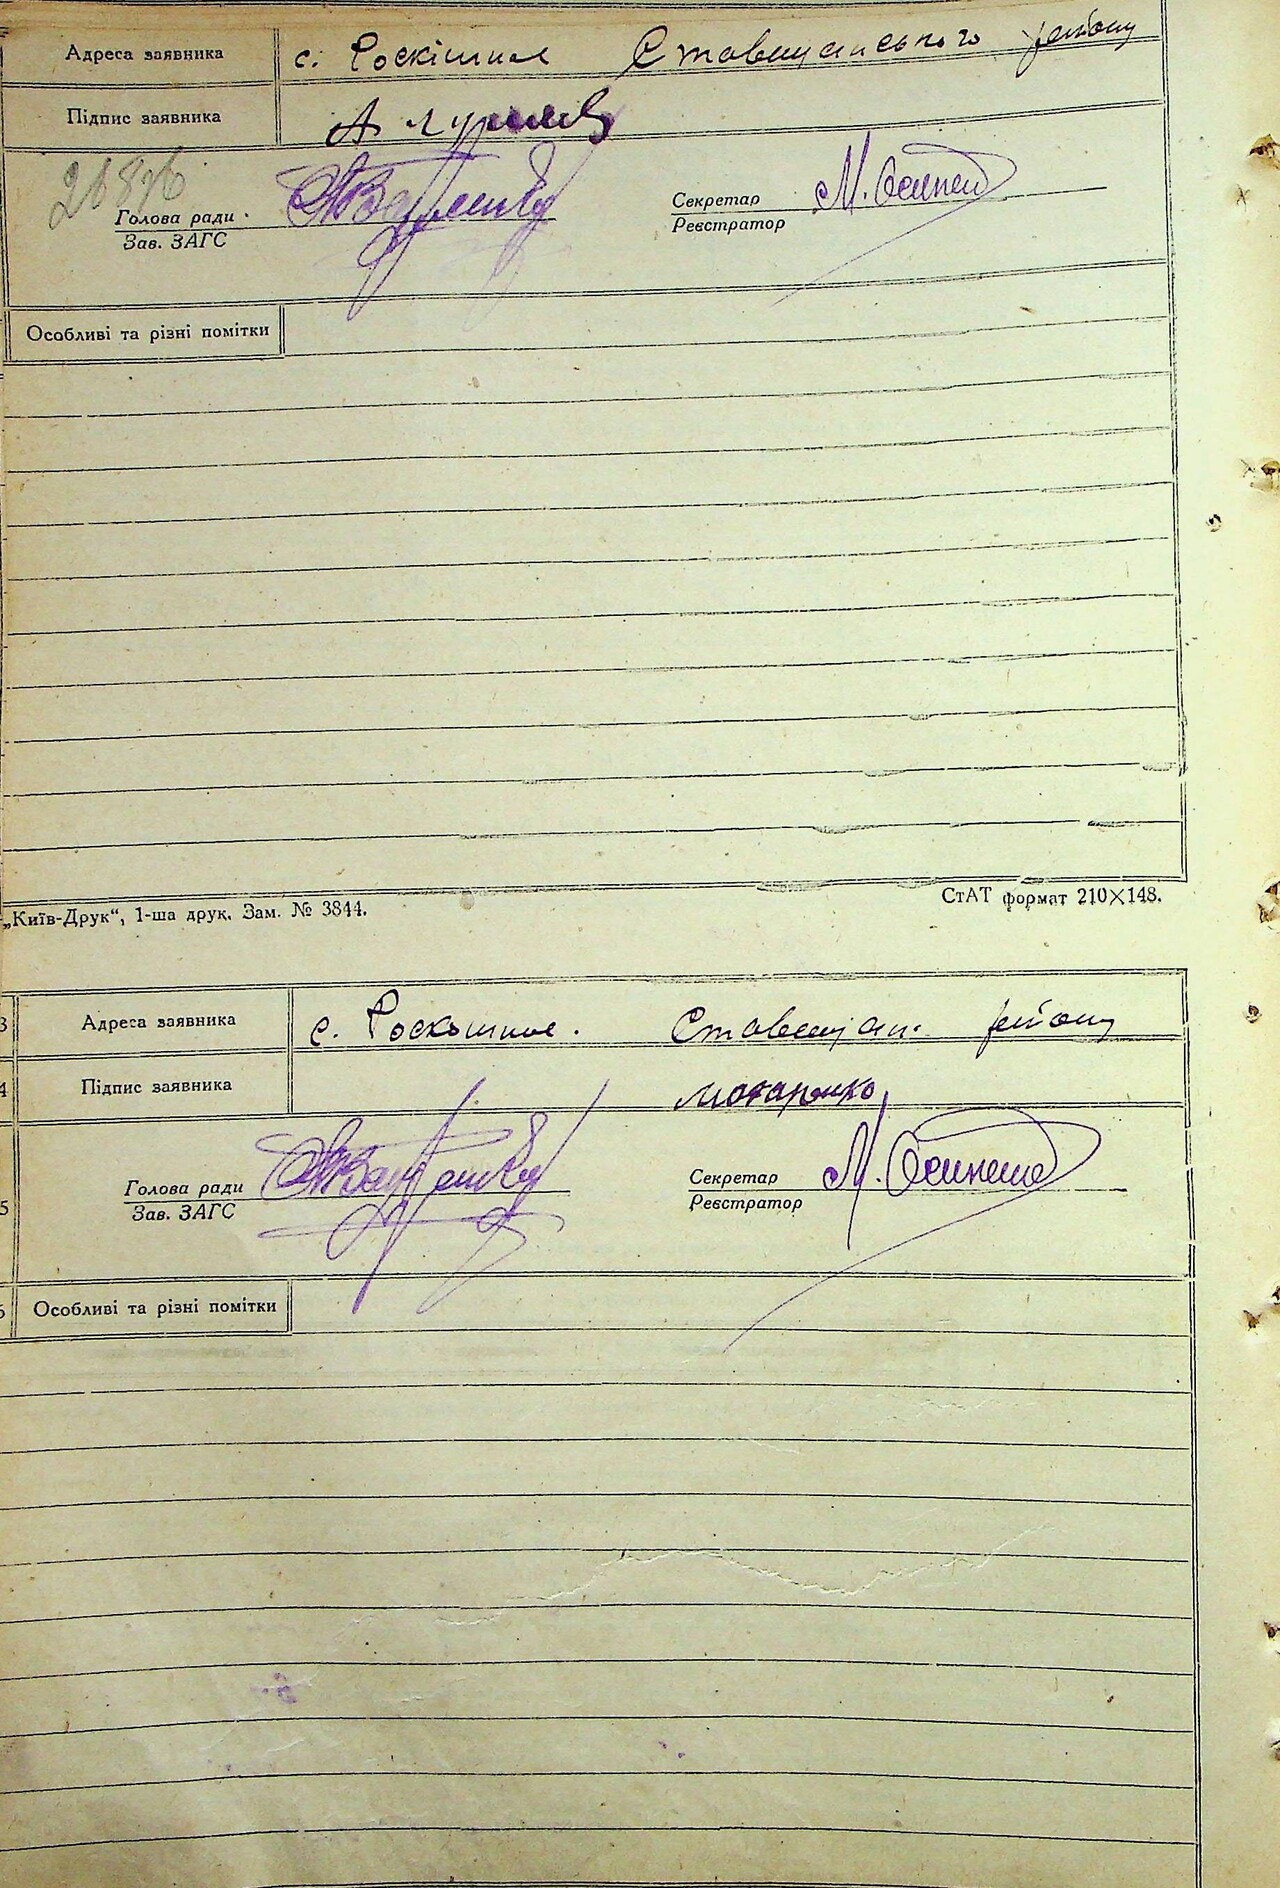 Адреса заявника с. Роскішне Ставищанського району
Підпис заявника А
Голова ради Секретар М. Осипенко
Зав. ЗАГС Реєстратор
Особливі та різні помітки
„Київ-Друк“, 1-ша друк. Зам. № 3844. СтАТ формат 210×148.
3 Адреса заявника с. Роскошне. Ставищан. району
4 Підпис заявника
Голова ради Секретар М. Осипенко
5 Зав. ЗАГС Реєстратор
6 Особливі та різні помітки